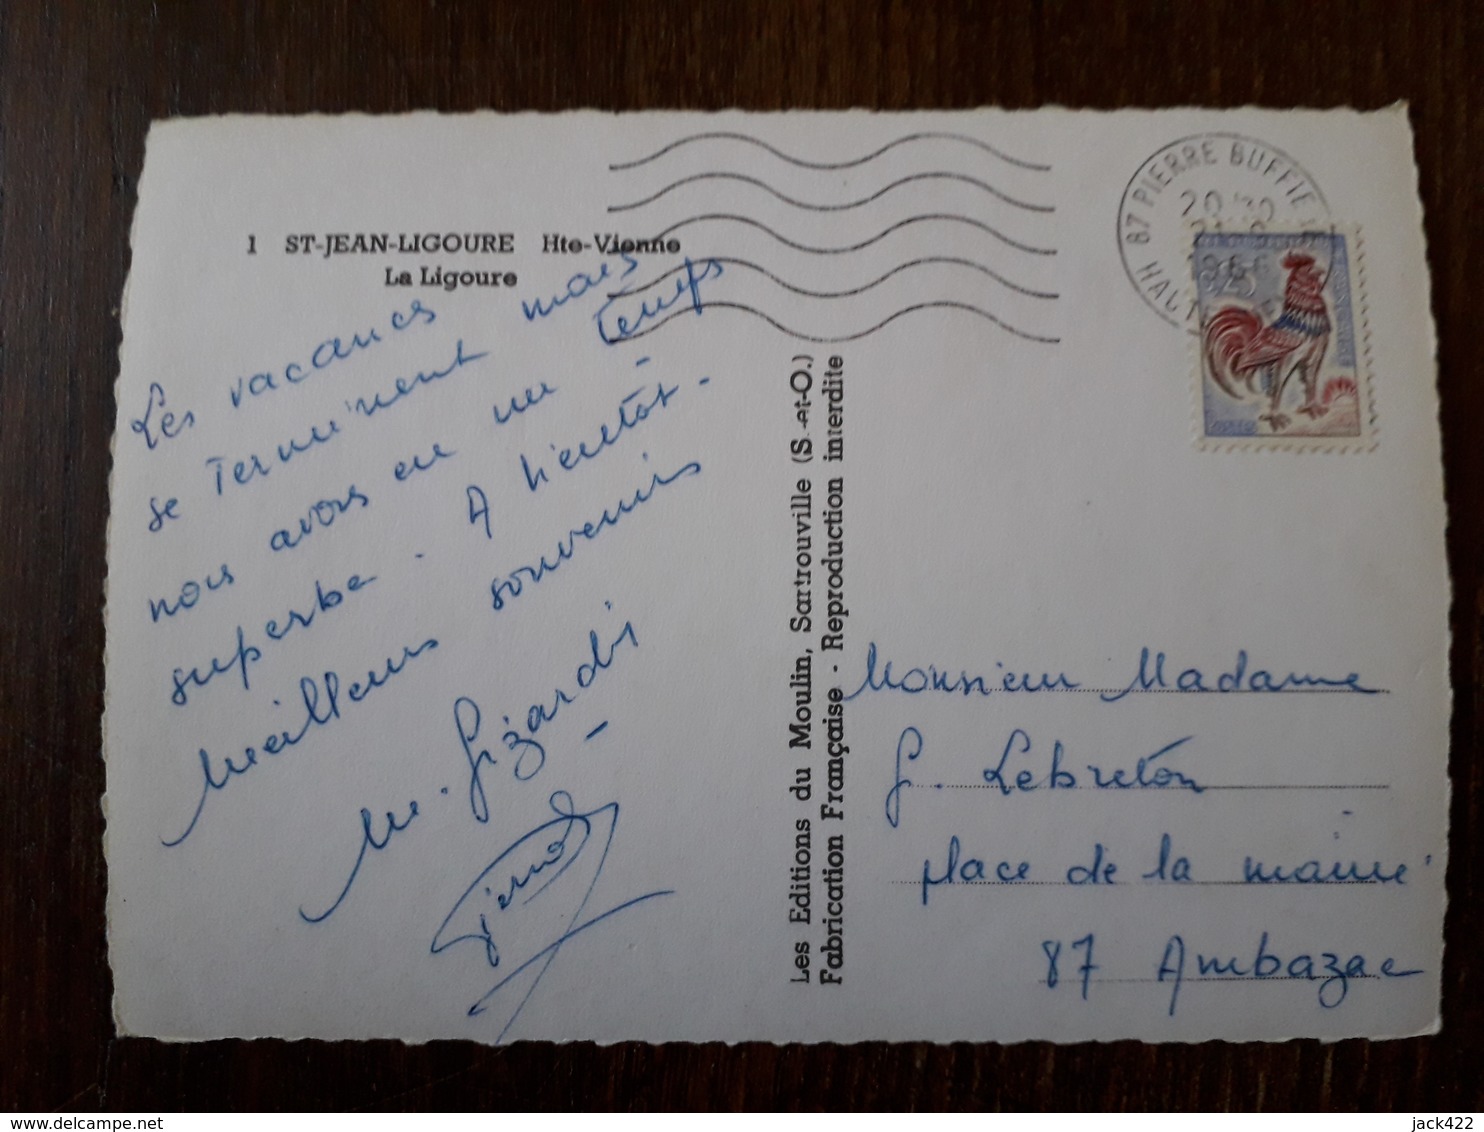 1 ST-JEAN-LIGOURE Hte-Vienne
La Ligoure
Les vacances
se terminent mais
nous avons eu un temps
superbe. A bientôt.
Meilleurs souvenirs
M.
Les Editions du Moulin, Sartrouville (S.-et-O.)
Fabrication Française - Reproduction interdite
87 PIERRE BUFFIE
HAUT
1966
0,25
Monsieur Madame
G. Lebreton
place de la mairie
87 Ambazac
delcampe.net
jack422